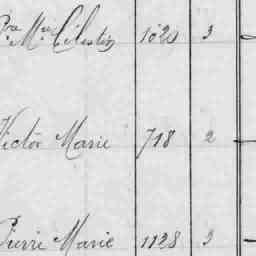 Pre Mie Célestin 1020 3
Victor Marie 718 2
Pierre Marie 1128 3